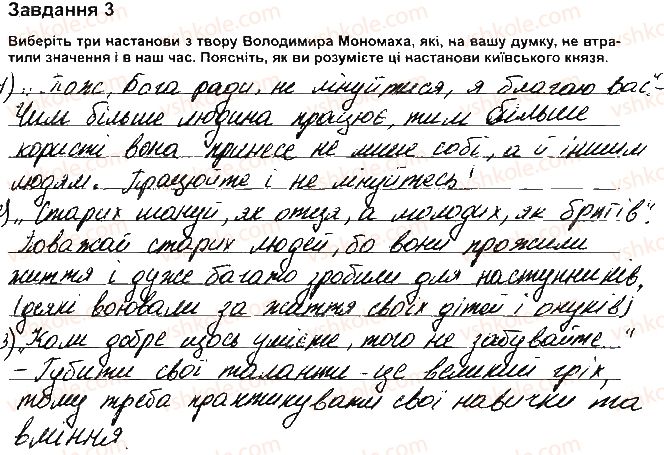 Завдання 3
Виберіть три настанови з твору Володимира Мономаха, які, на вашу думку, не втра-
тили значення і в наш час. Поясніть, як ви розумієте ці настанови київського князя.
1) „Тож, Бога ради, не лінуйтеся, я благаю вас“-
Чим більше людина працює, тим більше
користі вона принесе не лише собі, а й іншим
людям. Працюйте і не лінуйтесь!
2) „Старих шануй, як отця, а молодих, як братів“.
Поважай старих людей, бо вони прожили
життя і дуже багато зробили для наступників.
(деякі воювали за життя своїх дітей і онуків)
3) „Коли добре щось умієте, того не забувайте..."
- Губити свої таланти - це великий гріх,
тому треба практикувати свої навички та
вміння.